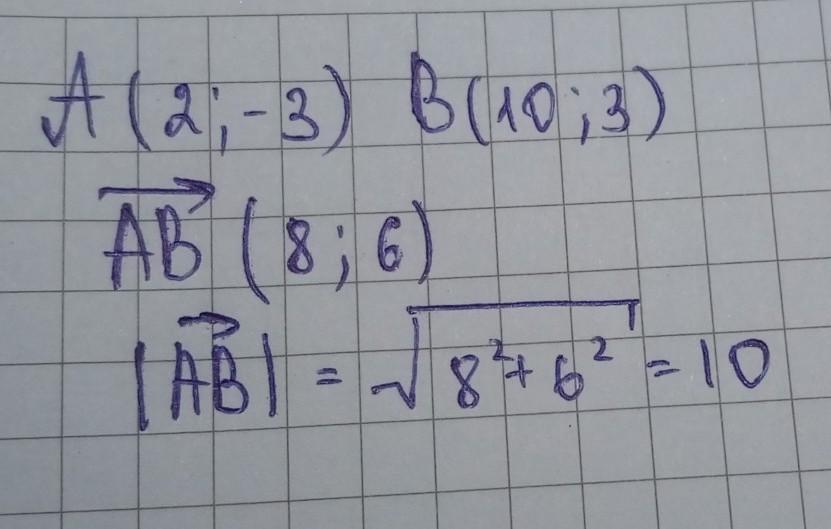 A(2;-3) B(10;3)
$\overrightarrow{AB}$ (8;6)
|$\overrightarrow{AB}$| = $\sqrt{8^2+6^2}$ = 10